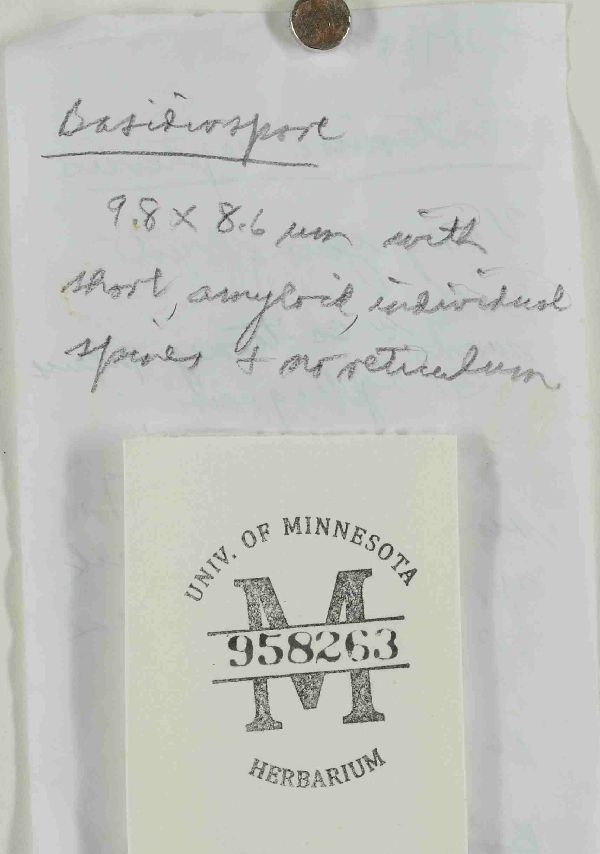 Basidiospore
9.8 x 8.6 um with
short, amyloid, individual
spines + no reticulum
UNIV. OF MINNESOTA
M
958263
HERBARIUM